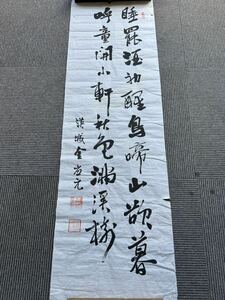 睡罷酒初醒鳥啼山欲暮
呼童開小軒秋色滿深樹
漢城金